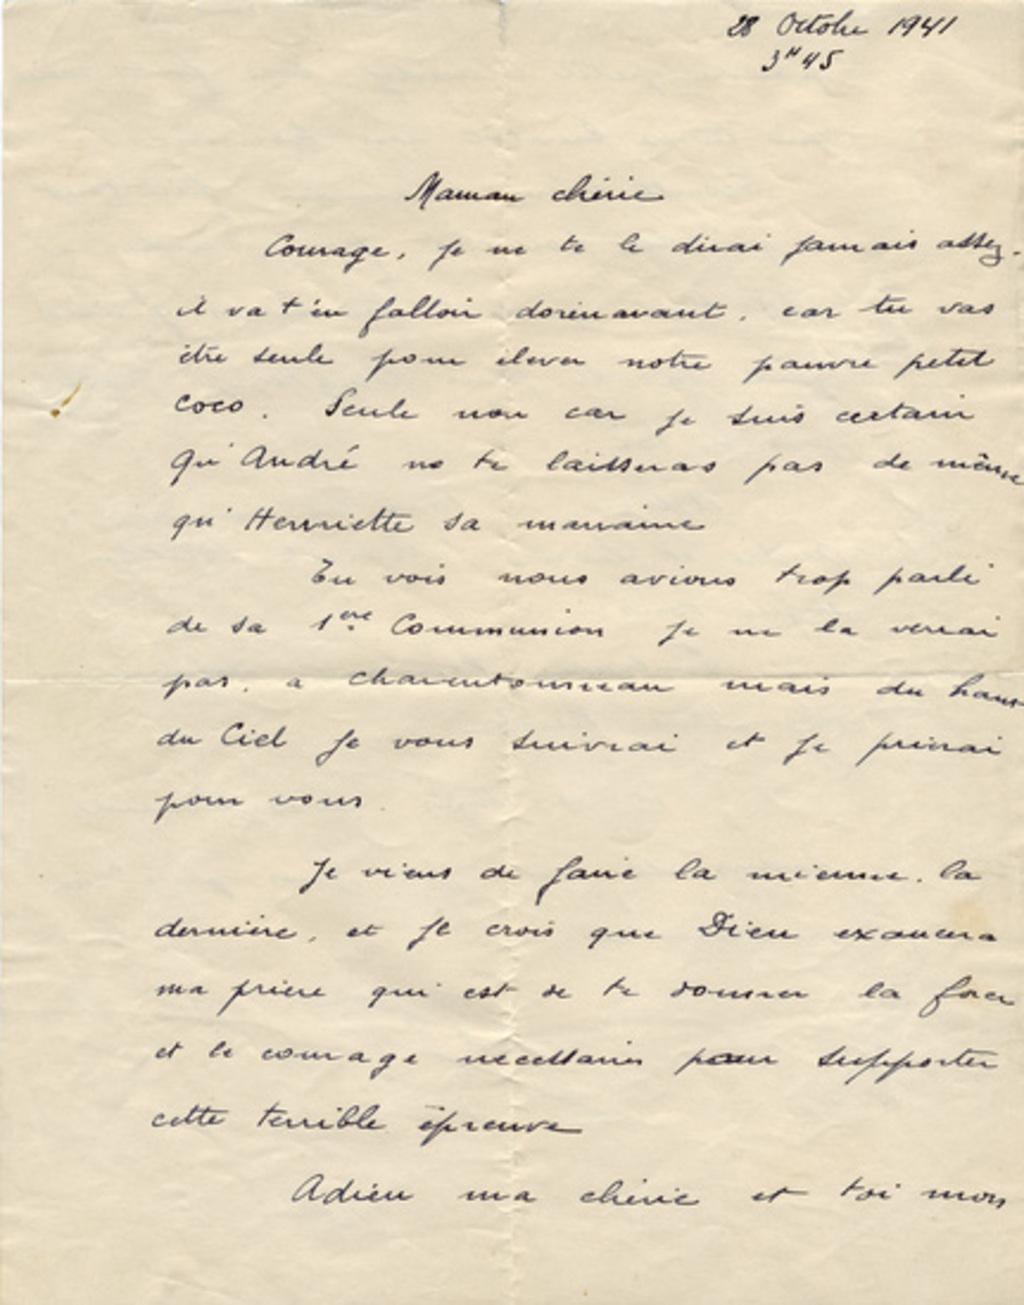 28 Octobre 1941
3H45
Maman chérie
Courage, je ne te le dirai jamais assez.
il va t'en falloir dorénavant, car tu vas
être seule pour élever notre pauvre petit
coco. Seule non car je suis certain
qu'André ne te laisseras pas de même
qu'Henriette sa marraine
Tu vois nous avions trop parlé
de sa 1ere Communion je ne la verrai
pas, a Charentonneau mais du haut
du Ciel je vous suivrai et je prierai
pour vous.
Je viens de faire la mienne. la
dernière, et je crois que Dieu exaucera
ma prière qui est de te donner la force
et le courage necessaires pour supporter
cette terrible épreuve
Adieu ma chérie et toi mon